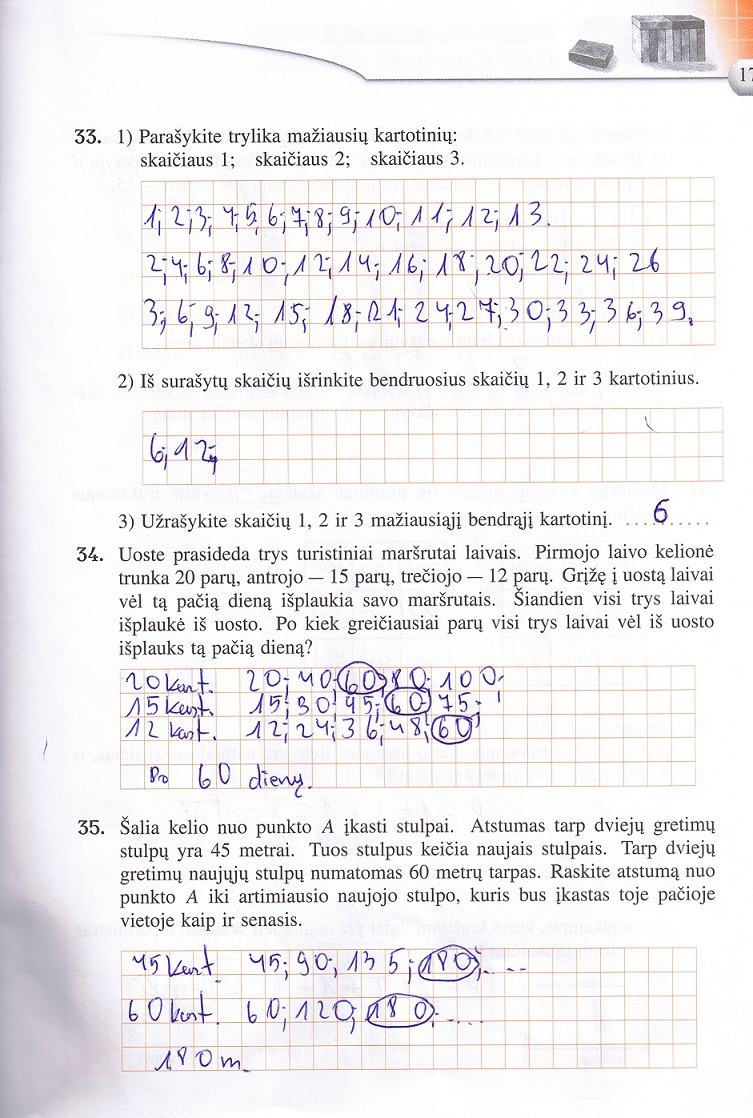 17
33. 1) Parašykite trylika mažiausių kartotinių:
skaičiaus 1; skaičiaus 2; skaičiaus 3.
1; 2; 3; 4; 5; 6; 7; 8; 9; 10; 11; 12; 13.
2; 4; 6; 8; 10; 12; 14; 16; 18; 20; 22; 24; 26
3; 6; 9; 12; 15; 18; 21; 24; 27; 30; 33; 36; 39.
2) Iš surašytų skaičių išrinkite bendruosius skaičių 1, 2 ir 3 kartotinius.
6; 12;
3) Užrašykite skaičių 1, 2 ir 3 mažiausiąjį bendrąjį kartotinį. ....6.....
34. Uoste prasideda trys turistiniai maršrutai laivais. Pirmojo laivo kelionė
trunka 20 parų, antrojo — 15 parų, trečiojo — 12 parų. Grįžę į uostą laivai
vėl tą pačią dieną išplaukia savo maršrutais. Šiandien visi trys laivai
išplaukė iš uosto. Po kiek greičiausiai parų visi trys laivai vėl iš uosto
išplauks tą pačią dieną?
20 kart. 20; 40; 60; 80; 100;
15 kart. 15; 30; 45; 60; 75;
12 kart. 12; 24; 36; 48; 60
Po 60 dienų.
35. Šalia kelio nuo punkto A įkasti stulpai. Atstumas tarp dviejų gretimų
stulpų yra 45 metrai. Tuos stulpus keičia naujais stulpais. Tarp dviejų
gretimų naujųjų stulpų numatomas 60 metrų tarpas. Raskite atstumą nuo
punkto A iki artimiausio naujojo stulpo, kuris bus įkastas toje pačioje
vietoje kaip ir senasis.
45 kart. 45; 90; 135; 180; ...
60 kart. 60; 120; 180; ....
180 m.